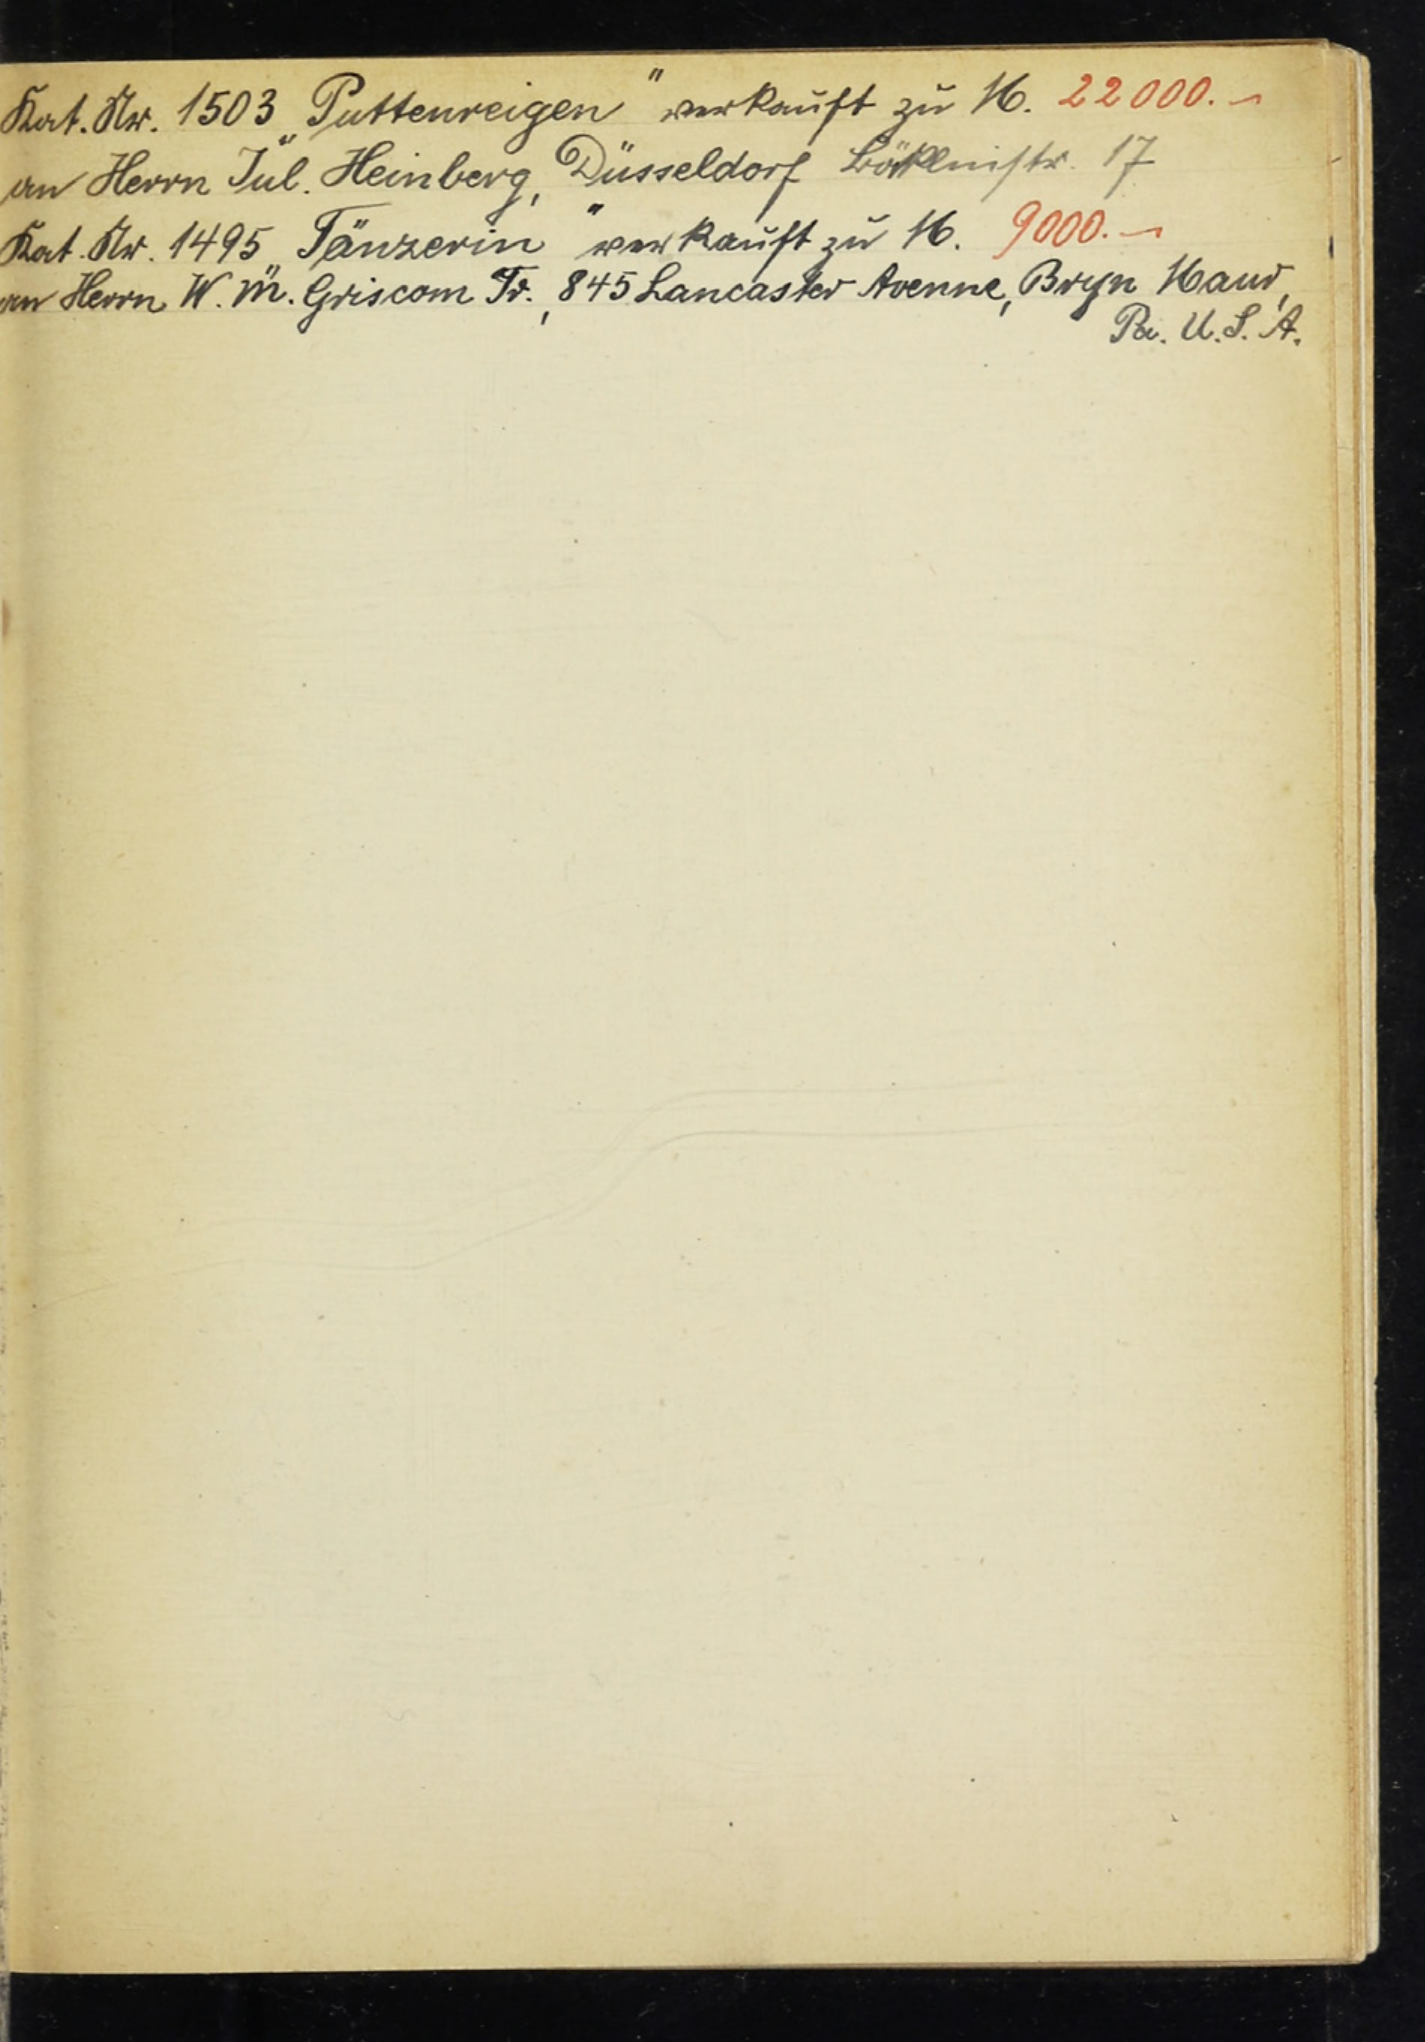 Kat. Nr. 1503 „Puttenreigen" verkauft zu M. 22000.–
an Herrn Jul. Heinberg, Düsseldorf 17
Kat. Nr. 1495 „Tänzerin" verkauft zu M. 9000.–
an Herrn W. M. Griscom Jr., 845 Lancaster Avenue, Bryn Mawr,
Pa. U. S. A.